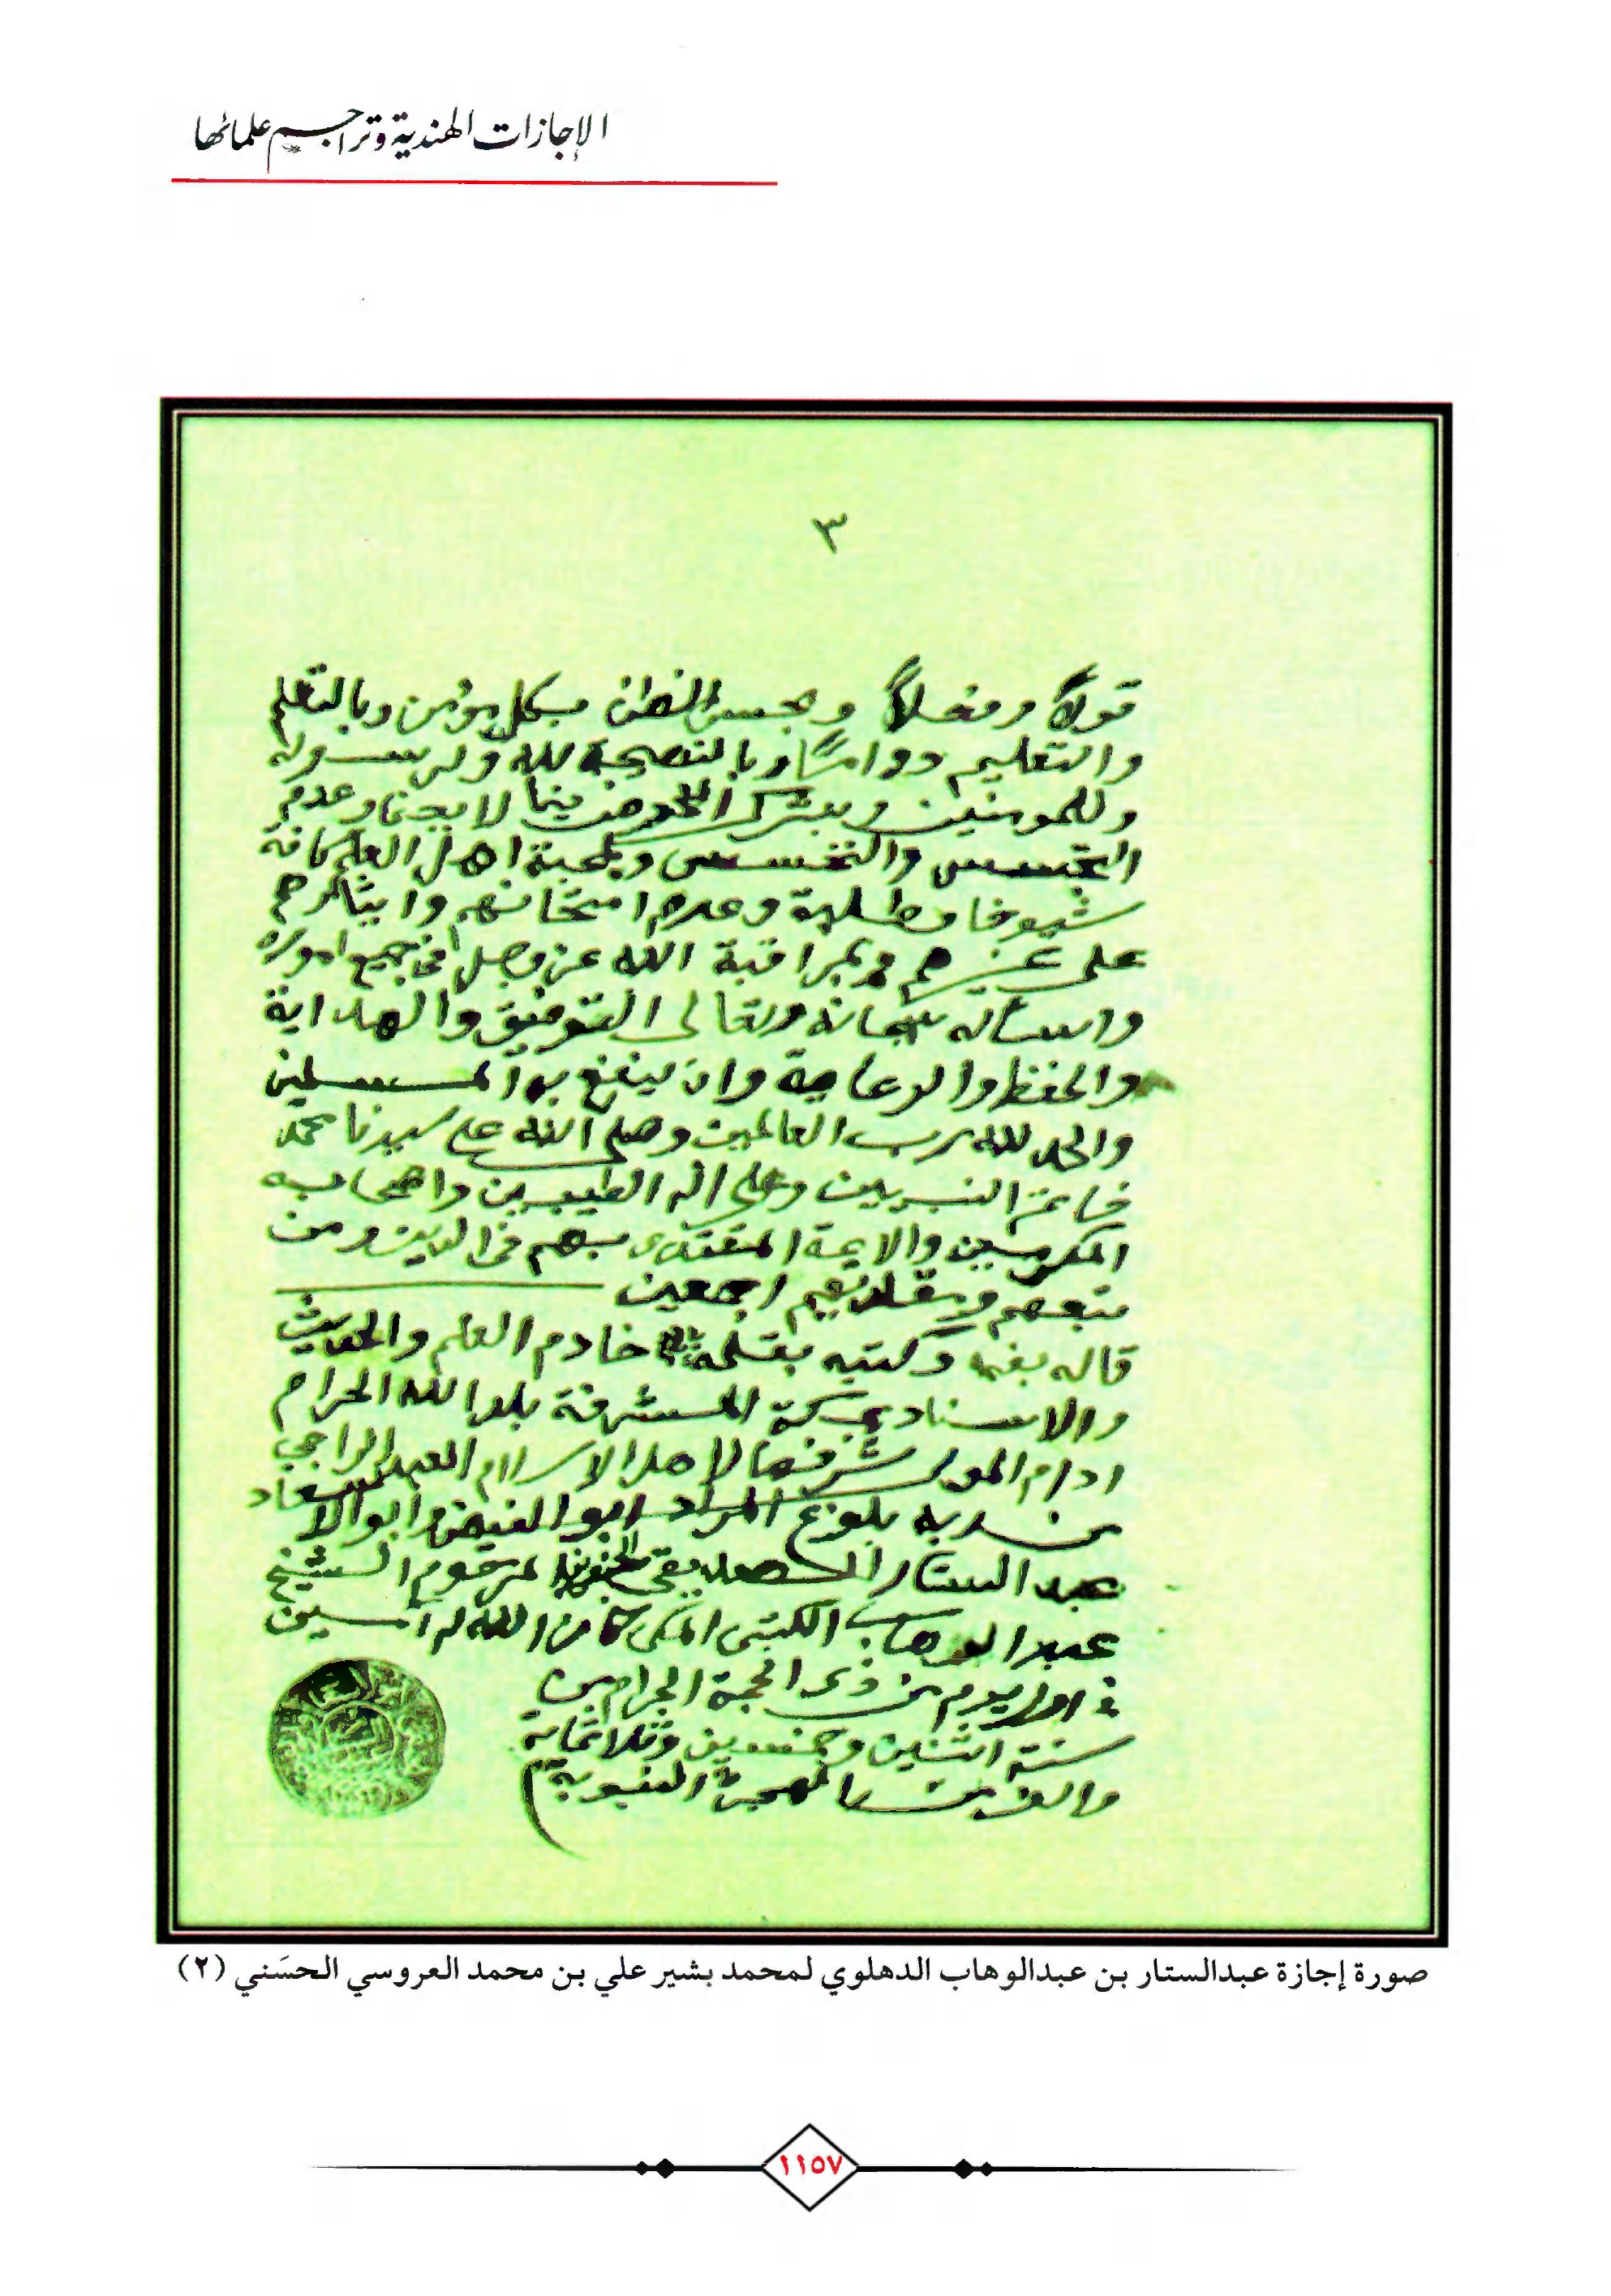 الإجازات الهندية وتراجم علمائها
٣
قولاً وفعلاً وبحسن الظن بكل مؤمن وبالتعلم
والتعليم دواماً وبالنصيحة لله ولرسوله
وللمومنين وبترك الخوض فيما لا يعنا وعدم
التجسس والتحسس وبمحبة اهل العلم كافة
شيوخا وطلبة وعدم امتحانهم وايثارهم
على غيرهم وبمراقبة الله عز وجل في جميع اموره
واسأله سبحانه وتعالى التوفيق والهداية
والحفظ والرعاية وان ينفع به المسلمين
والحمد لله رب العالمين وصلى الله على سيدنا محمد
خاتم النبيين وعلى اله الطيبين واصحابه
المكرمين والايمة المقتدى بهم في الدين ومن
تبعهم وقلدهم اجمعين
قاله بفمه وكتبه بقلمه خادم العلم والحديث
والاسناد بمكة المشرفة بلد الله الحرام
ادام المولى شرفها لاهل الاسلام العبد الراجي
من ربه بلوغ المراد ابو الفيض ابو الاسعاد
عبد الستار الصديقي الحنفي بن المرحوم الشيخ
عبد الوهاب الكتبي المكي كان الله له آمين
في اول يوم من ذي الحجة الحرام من
سنة اثنين وخمسين وثلاثماية
والف من الهجرة النبوية
صورة إجازة عبدالستار بن عبدالوهاب الدهلوي لمحمد بشير علي بن محمد العروسي الحسَني (٢)
١١٥٧